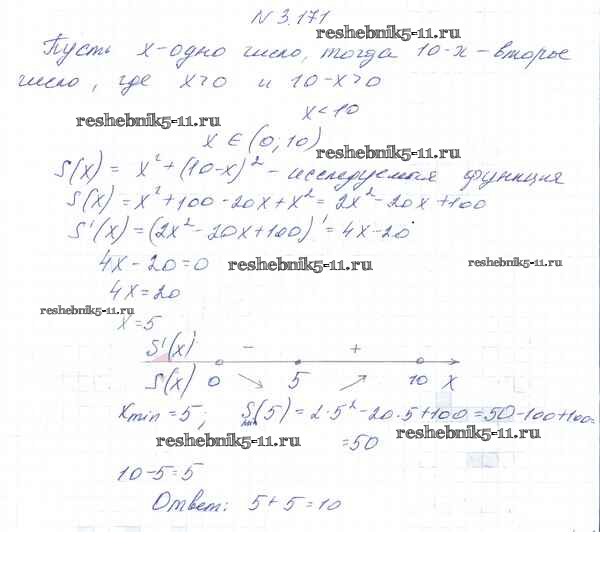 N 3.171
reshebnik5-11.ru
Пусть x-одно число, тогда 10-x - второе
число, где x>0 и 10-x>0
x<10
reshebnik5-11.ru
x ∈ (0,10)
reshebnik5-11.ru
S(x) = x² + (10-x)² - исследуемая функция
S(x) = x² + 100 - 20x + x² = 2x² - 20x + 100
S'(x) = (2x² - 20x + 100)' = 4x - 20
4x - 20 = 0
reshebnik5-11.ru
reshebnik5-11.ru
4x = 20
reshebnik5-11.ru
x = 5
S'(x) - +
S(x) 0 ↘ 5 ↗ 10 x
xmin = 5; Smin(5) = 2·5² - 20·5 + 100 = 50 - 100 + 100 =
reshebnik5-11.ru
reshebnik5-11.ru
= 50
10-5=5
Ответ: 5+5=10